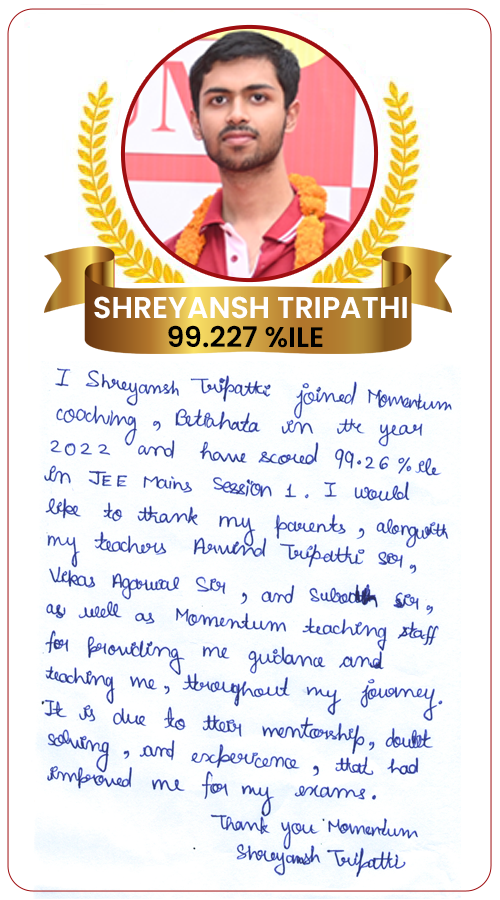 UM
SHREYANSH TRIPATHI
99.227 %ILE
I Shreyansh Tripathi joined Momentum
coaching, Betiahata in the year
2022 and have scored 99.26 %ile
in JEE Mains Session 1. I would
like to thank my parents, alongwith
my teachers Arvind Tripathi sir,
Vikas Agarwal Sir, and Subodh sir,
as well as Momentum teaching staff
for providing me guidance and
teaching me, throughout my journey.
It is due to their mentorship, doubt
solving, and experience, that had
improved me for my exams.
Thank you Momentum
Shreyansh Tripathi